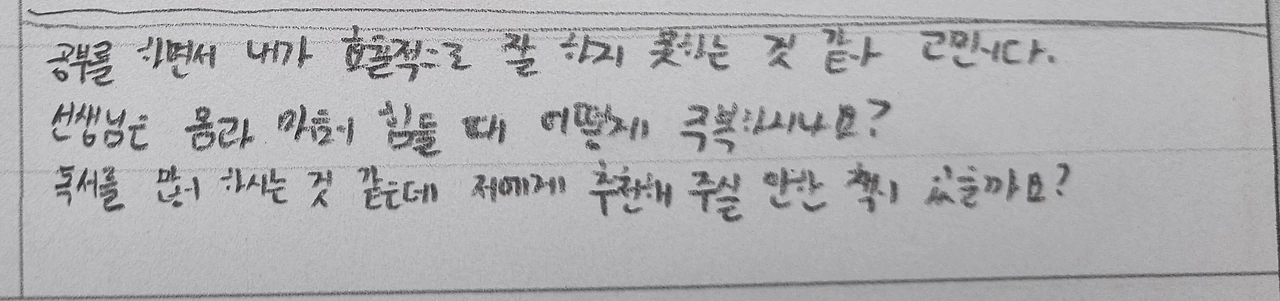 공부를 하면서 내가 효율적으로 잘 하지 못하는 것 같아 고민이다.
선생님은 몸과 마음이 힘들 때 어떻게 극복하시나요?
독서를 많이 하시는 것 같은데 저에게 추천해 주실 만한 책이 있을까요?